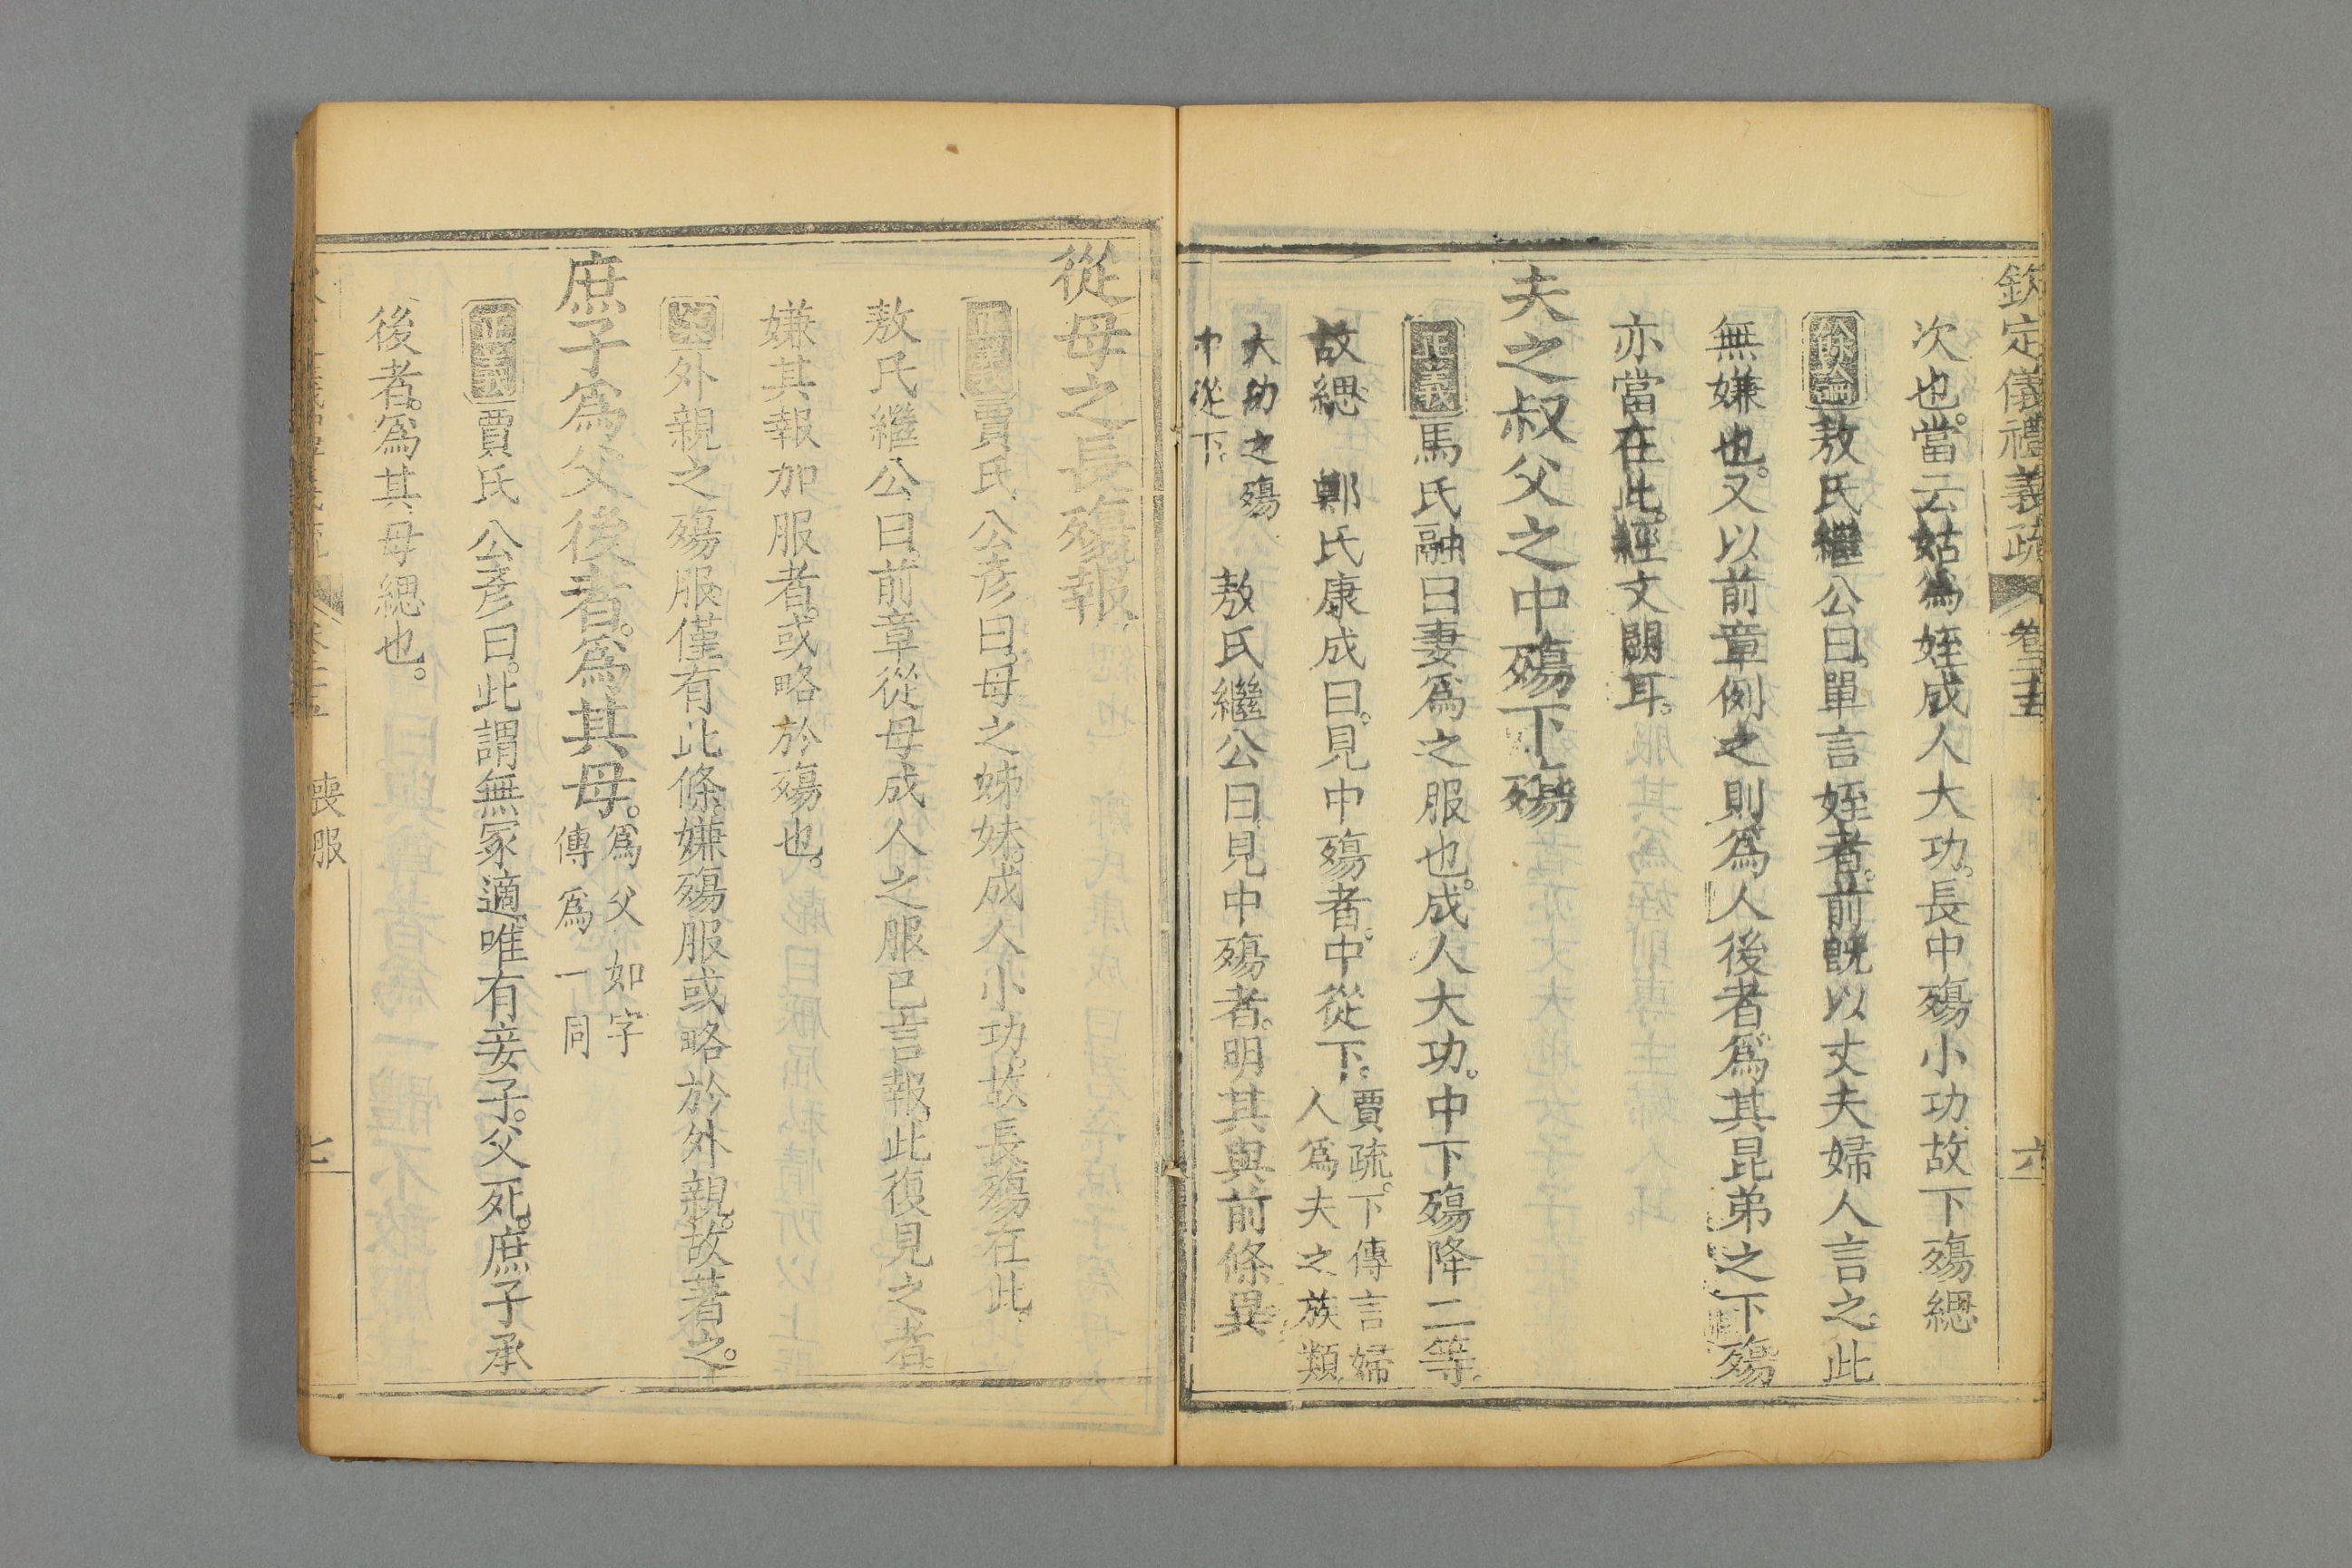 欽定儀禮義疏 卷二十五 六
次也。當云姑爲姪成人大功。長中殤小功。故下殤緦
餘論敖氏繼公曰。單言姪者。前既以丈夫婦人言之。此
無嫌也。又以前章例之則爲人後者爲其昆弟之下殤
亦當在此。經文闕耳。
夫之叔父之中殤下殤
正義馬氏融曰妻爲之服也。成人大功。中下殤降二等。
故緦 鄭氏康成曰。見中殤者。中從下。賈疏。下傳言婦
人爲夫之族類。
大功之殤
中從下。 敖氏繼公曰。見中殤者。明其與前條異
從母之長殤報。
正義賈氏公彥曰。母之姊妹。成人小功。故長殤在此。
敖氏繼公曰。前章從母成人之服已言報。此復見之者
嫌其報加服者。或略於殤也。
案外親之殤服僅有此條。嫌殤服或略於外親。故著之。
庶子爲父後者。爲其母。爲父如字
傳爲一同
正義賈氏公彥曰。此謂無冢適。唯有妾子。父死。庶子承
後者。爲其母緦也。
喪服 七